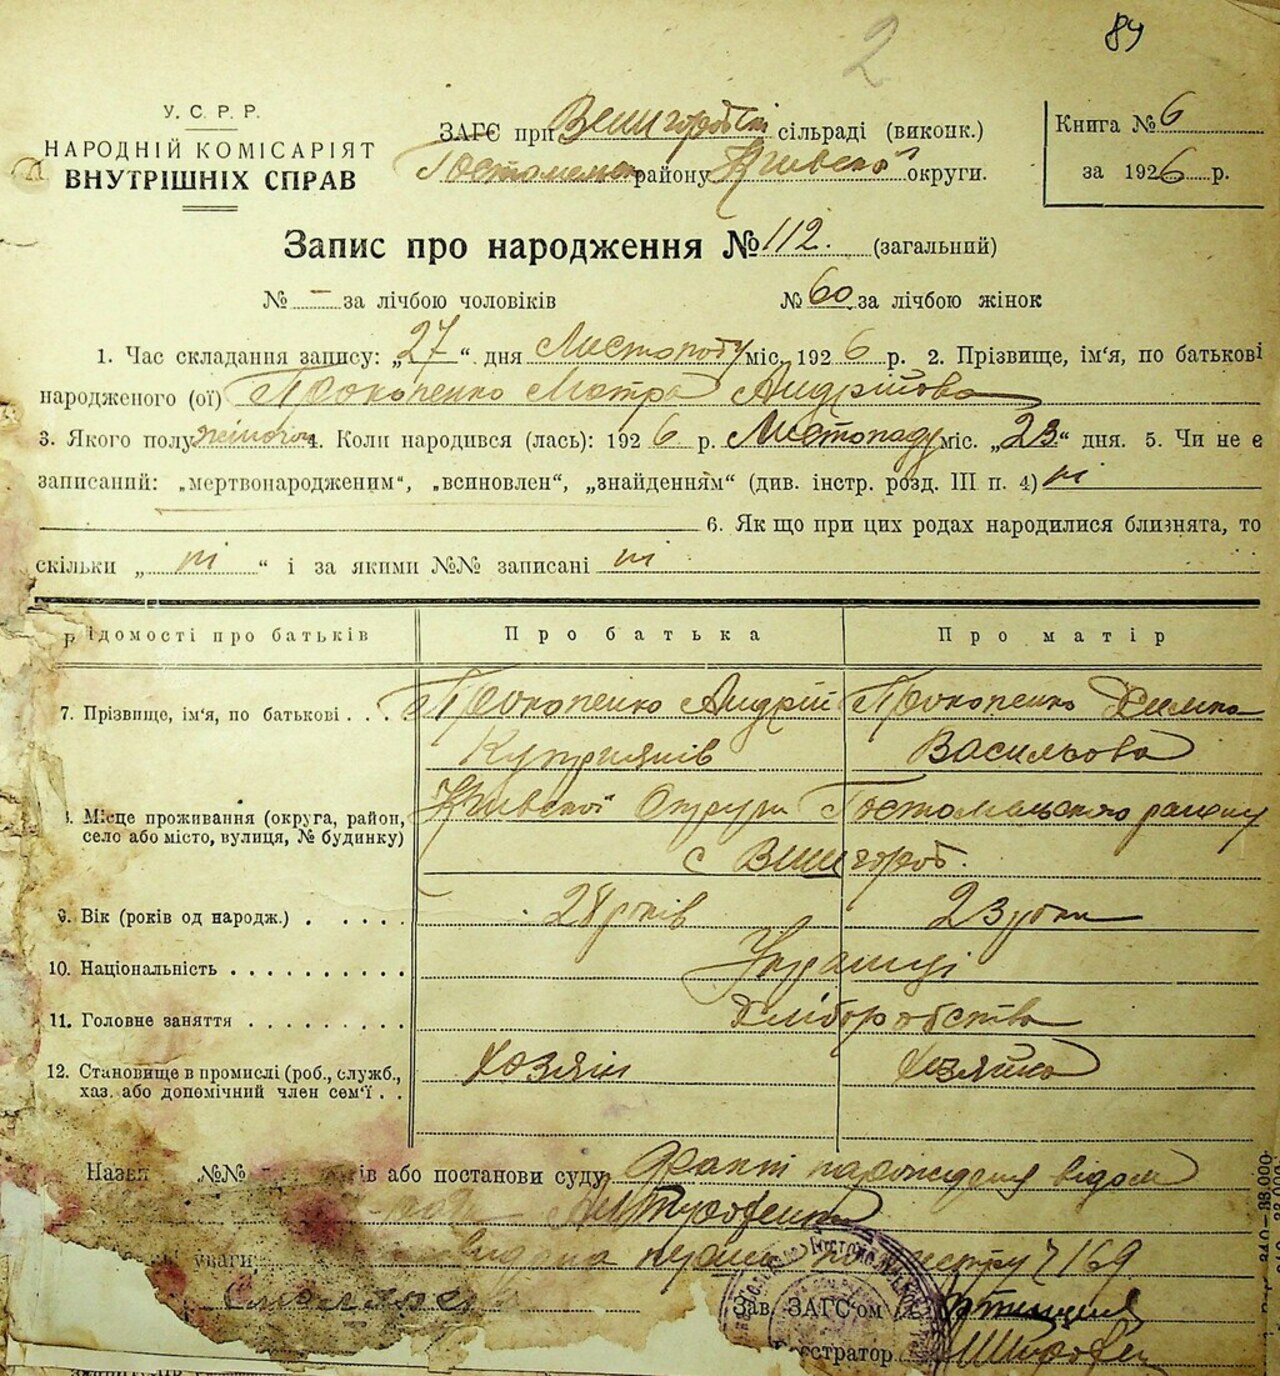 2
84
У. С. Р. Р.
НАРОДНІЙ КОМІСАРІЯТ
ВНУТРІШНІХ СПРАВ
ЗАГС при сільраді (виконк.)
району округи.
Книга № 6
за 1926 р.
Запис про народження № 112. (загальний)
№ – за лічбою чоловіків № 60 за лічбою жінок
1. Час складання запису: „27“ дня Листопаду міс. 1926 р. 2. Прізвище, ім‘я, по батькові
народженого (ої) Прокопенко Мотра Андрійова
3. Якого полу жіночого 4. Коли народився (лась): 1926 р. Листопаду міс. „23“ дня. 5. Чи не є
записаний: „мертвонародженим“, „всиновлен“, „знайденням“ (див. інстр. розд. III п. 4) ні
6. Як що при цих родах народилися близнята, то
скільки „ ні “ і за якими №№ записані ні
ідомості про батьків Про батька Про матір
7. Прізвище, ім‘я, по батькові . . . . Прокопенко Андрій Прокопенко
Куприянів Васильова
Місце проживання (округа, район,
село або місто, вулиця, № будинку)
Київської Округи Гостомельського району
с Вишгород.
9. Вік (років од народж.) . . . . . 28 років 23 роки
10. Національність . . . . . . . . . . Українці
11. Головне заняття . . . . . . . . . Хліборобство
12. Становище в промислі (роб., служб., Хозяїн Хозяйка
хаз. або допомічний член сем‘ї . .
Назви №№ ів або постанови суду
уваги:
7169
Зав. ЗАГС‘ом
стратор